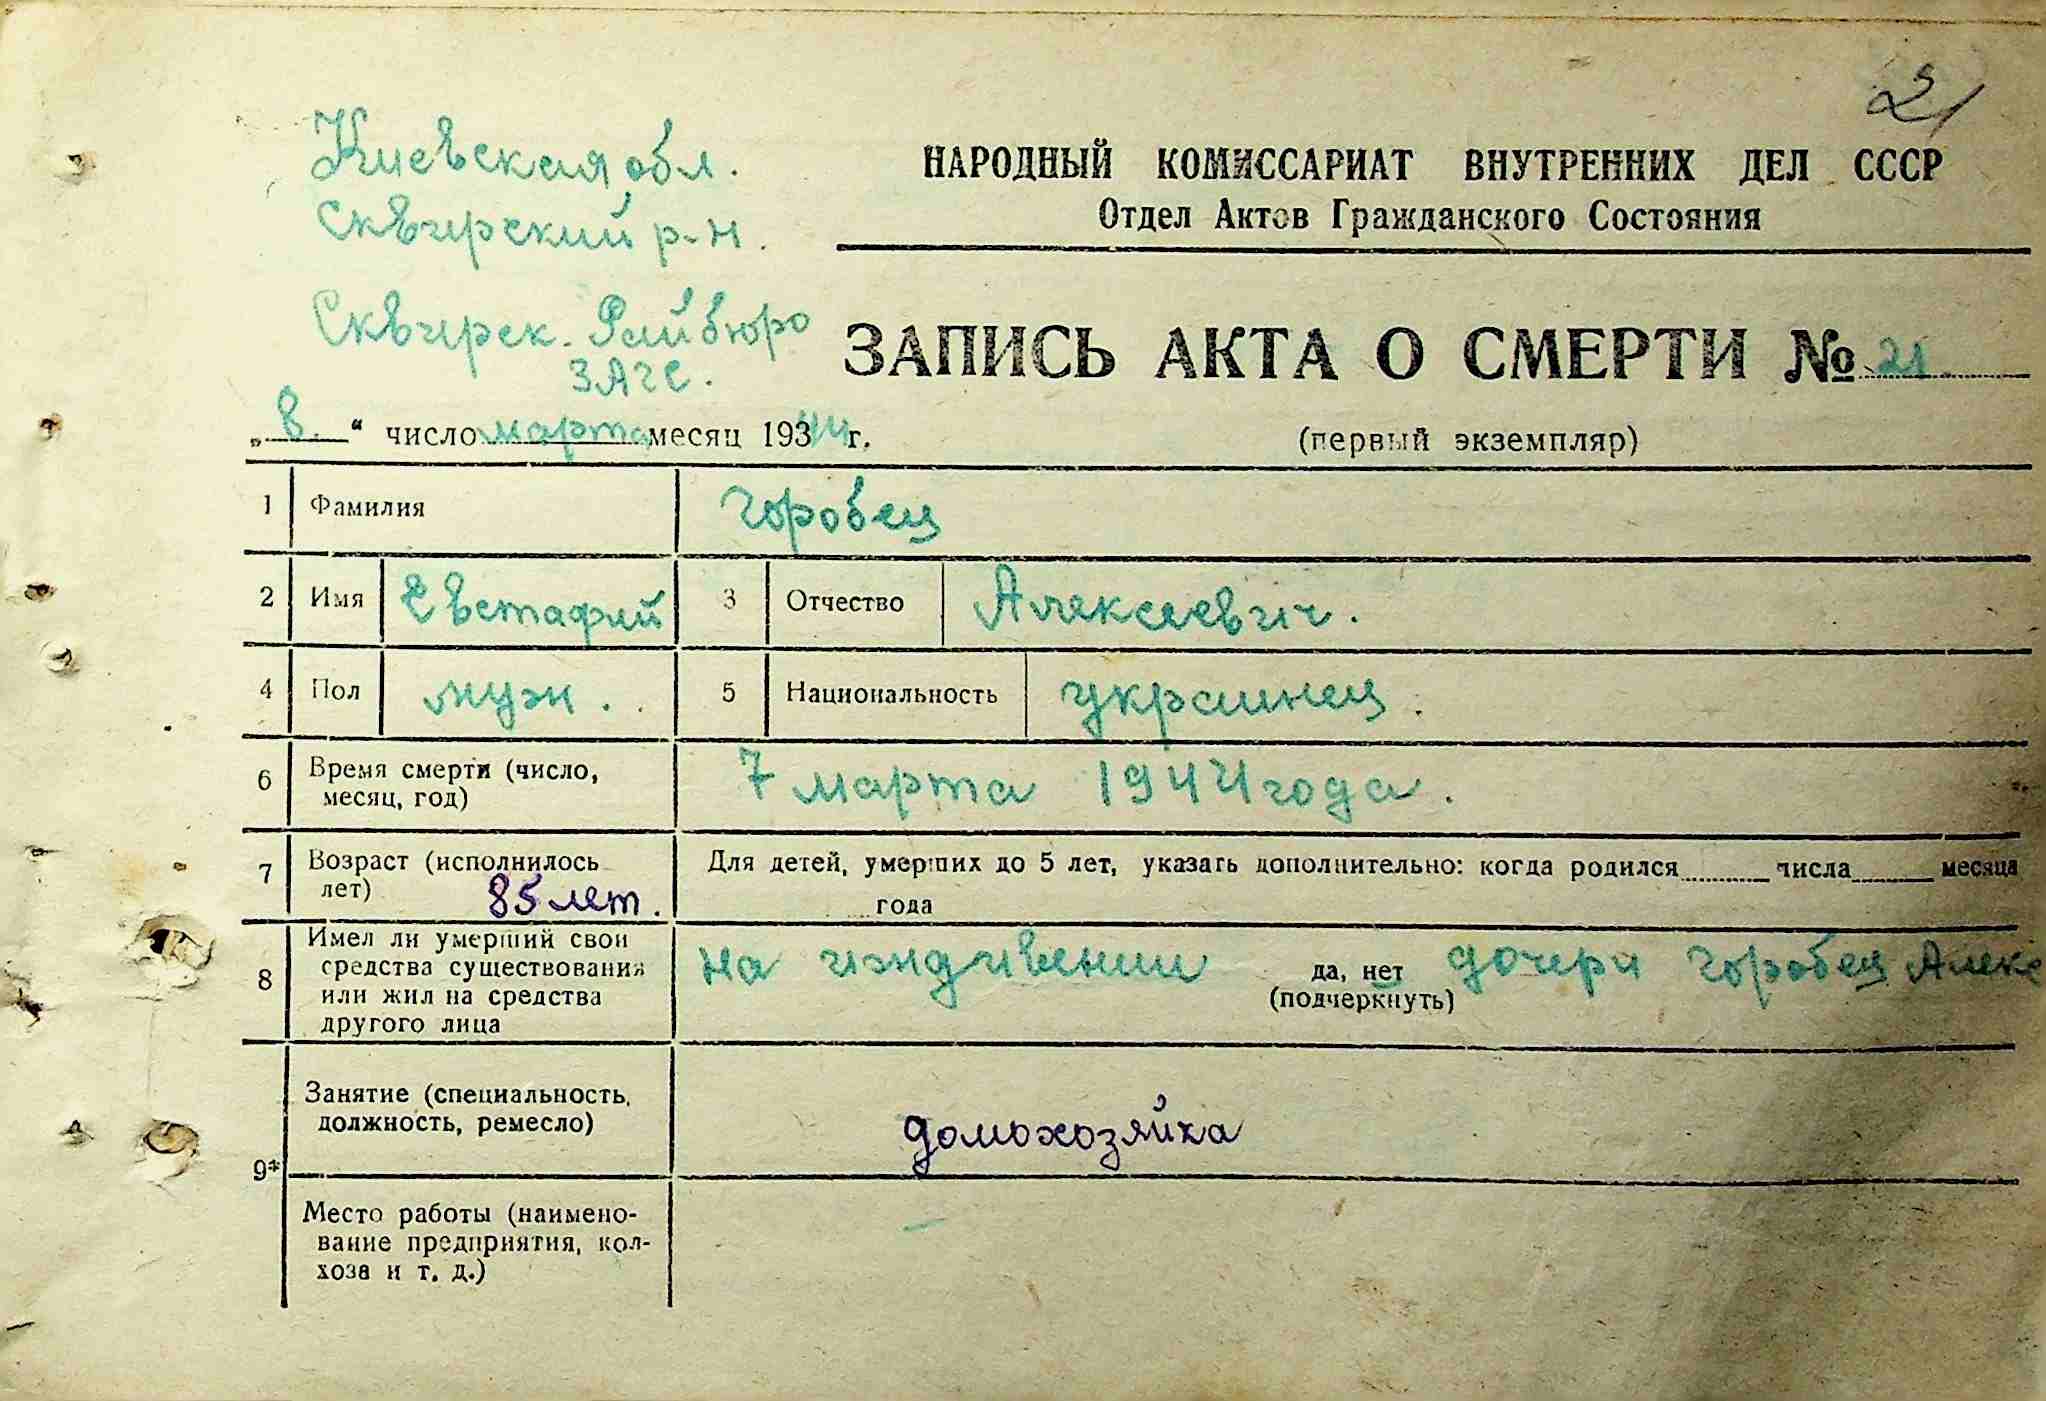 21
Киевская обл.
Сквирский р-н.
Сквирск. Райбюро
ЗАГС.
НАРОДНЫЙ КОМИССАРИАТ ВНУТРЕННИХ ДЕЛ СССР
Отдел Актов Гражданского Состояния
ЗАПИСЬ АКТА О СМЕРТИ № 21.
„8.“ число марта месяц 1944 г.
(первый экземпляр)
1 Фамилия Горобец
2 Имя Евстафий 3 Отчество Алексеевич.
4 Пол муж. 5 Национальность украинец.
6 Время смерти (число, месяц, год) 7 марта 1944 года.
7 Возраст (исполнилось лет) 85 лет. Для детей, умерших до 5 лет, указать дополнительно: когда родился числа месяца
года
8 Имел ли умерший свои средства существования или жил на средства другого лица на иждивении да, нет дочери Горобец Алекс
(подчеркнуть)
9* Занятие (специальность, должность, ремесло) домохозяйка
Место работы (наименование предприятия, колхоза и т. д.) —